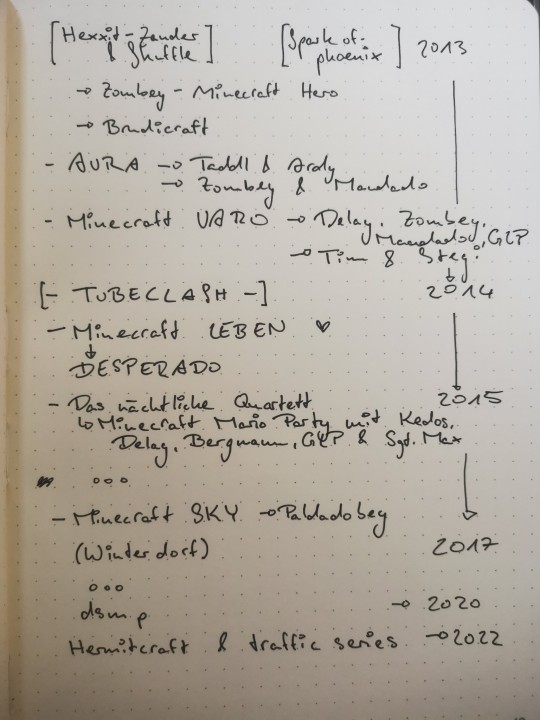 [Hexxit - Zander & Shuffle] [Spark of- phoenix] 2013
→ Zombey - Minecraft Hero
→ Brudicraft
- AURA → Taddl & Ardy
→ Zombey & Maudado
- Minecraft VARO → Delay, Zombey,
Maudado, GLP
→ Tim & Stegi
[- TUBECLASH -] 2014
- Minecraft LEBEN ♥
↓
DESPERADO
- Das nächtliche Quartett 2015
↳ Minecraft Mario Party mit Kedos,
Delay, Bergmann, GLP & Sgt. Max
...
- Minecraft SKY → Paldadobey
(Winterdorf) 2017
...
dsmp → 2020
Hermitcraft & traffic series → 2022